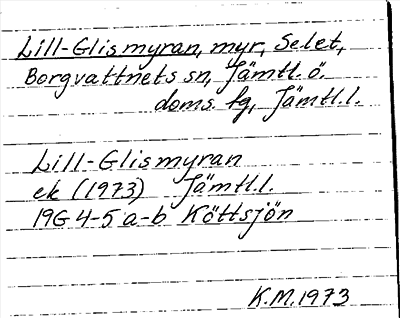 Lill-Glismyran, myr, Selet,
Borgvattnets sn, Jämtl. ö.
doms. fg, Jämtl.l.
Lill-Glismyran
ek (1973) Jämtl.l.
19G 4-5 a-b Köttsjön
K.M. 1973